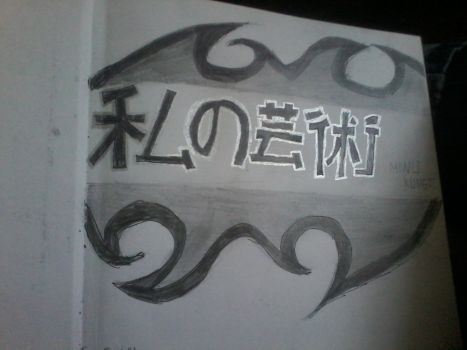 私の芸術
MINU
KUNST